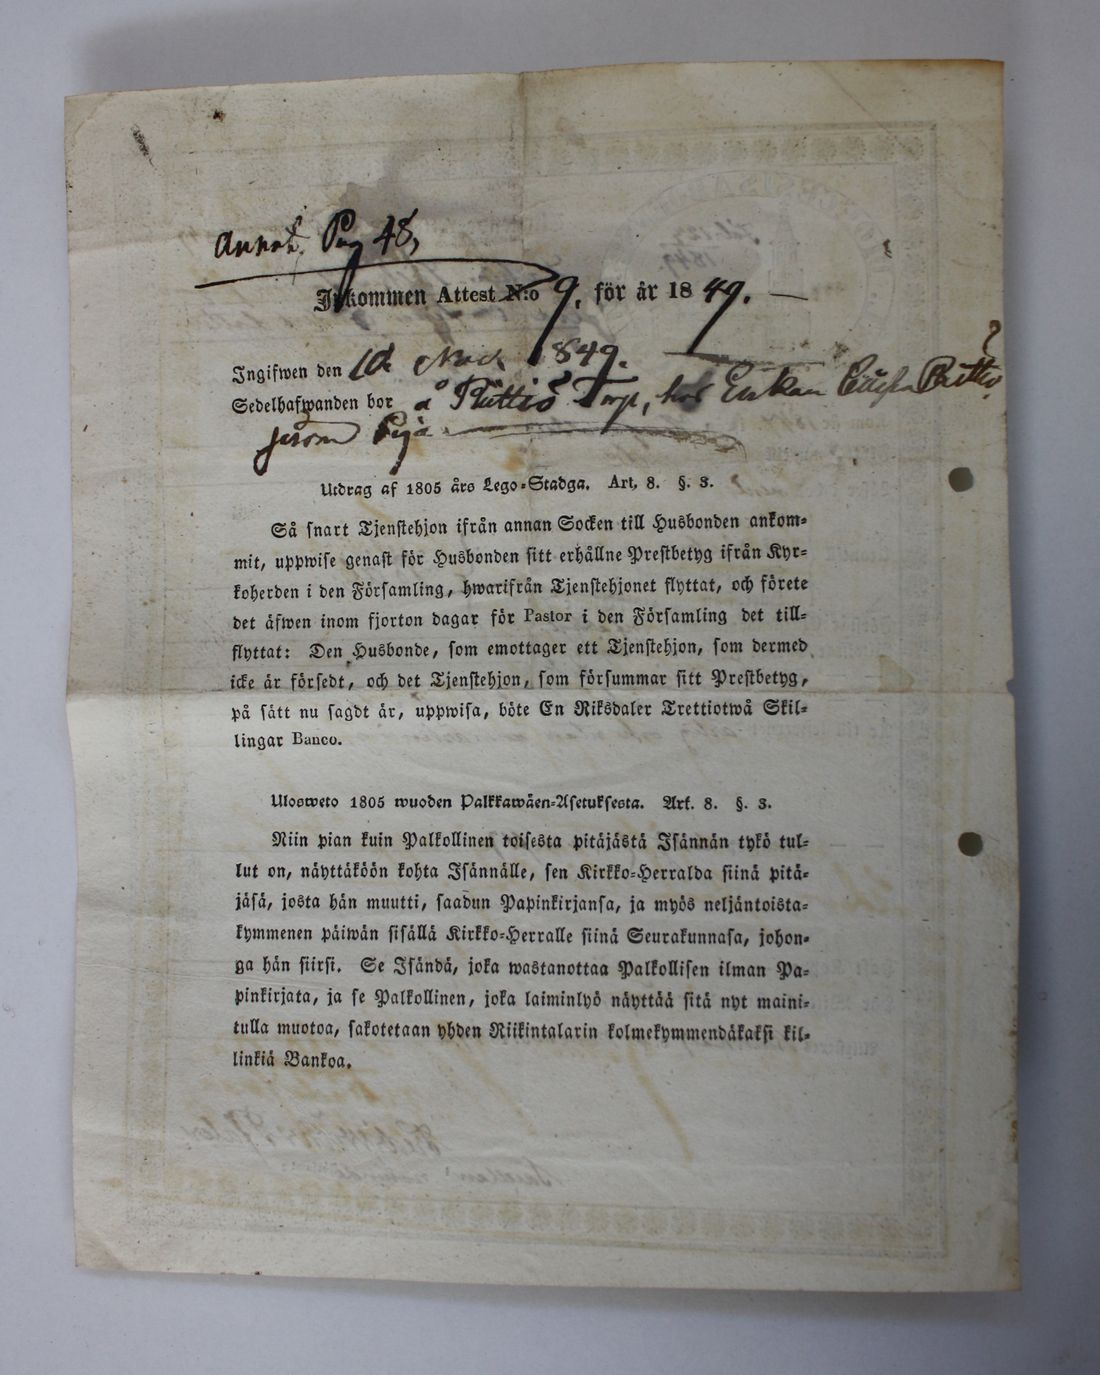 Annot. Pag 48,
Inkommen Attest N:o 9. för år 1849.
Ingifwen den 1849.
Sedelhafwanden bor å Torp, hos Enkan
Utdrag af 1805 års Lego-Stadga. Art. 8. §. 3.
Så snart Tjenstehjon ifrån annan Socken till Husbonden ankom-
mit, uppwise genast för Husbonden sitt erhållne Prestbetyg ifrån Kyr-
koherden i den Församling, hwarifrån Tjenstehjonet flyttat, och förete
det äfwen inom fjorton dagar för Pastor i den Församling det till-
flyttat: Den Husbonde, som emottager ett Tjenstehjon, som dermed
icke är försedt, och det Tjenstehjon, som försummar sitt Prestbetyg,
på sätt nu sagdt är, uppwisa, böte En Riksdaler Trettiotwå Skil-
lingar Banco.
Ulosweto 1805 wuoden Palkkawäen-Asetuksesta. Art. 8. §. 3.
Niin pian kuin Palkollinen toisesta pitäjästä Isännän tykö tul-
lut on, näyttäköön kohta Isännälle, sen Kirkko-Herralda siinä pitä-
jäsä, josta hän muutti, saadun Papinkirjansa, ja myös neljäntoista-
kymmenen päiwän sisällä Kirkko-Herralle siinä Seurakunnasa, johon-
ga hän siirsi. Se Isändä, joka wastanottaa Palkollisen ilman Pa-
pinkirjata, ja se Palkollinen, joka laiminlyö näyttää sitä nyt maini-
tulla muotoa, sakotetaan yhden Riikintalarin kolmekymmendäkaksi kil-
linkiä Bankoa.